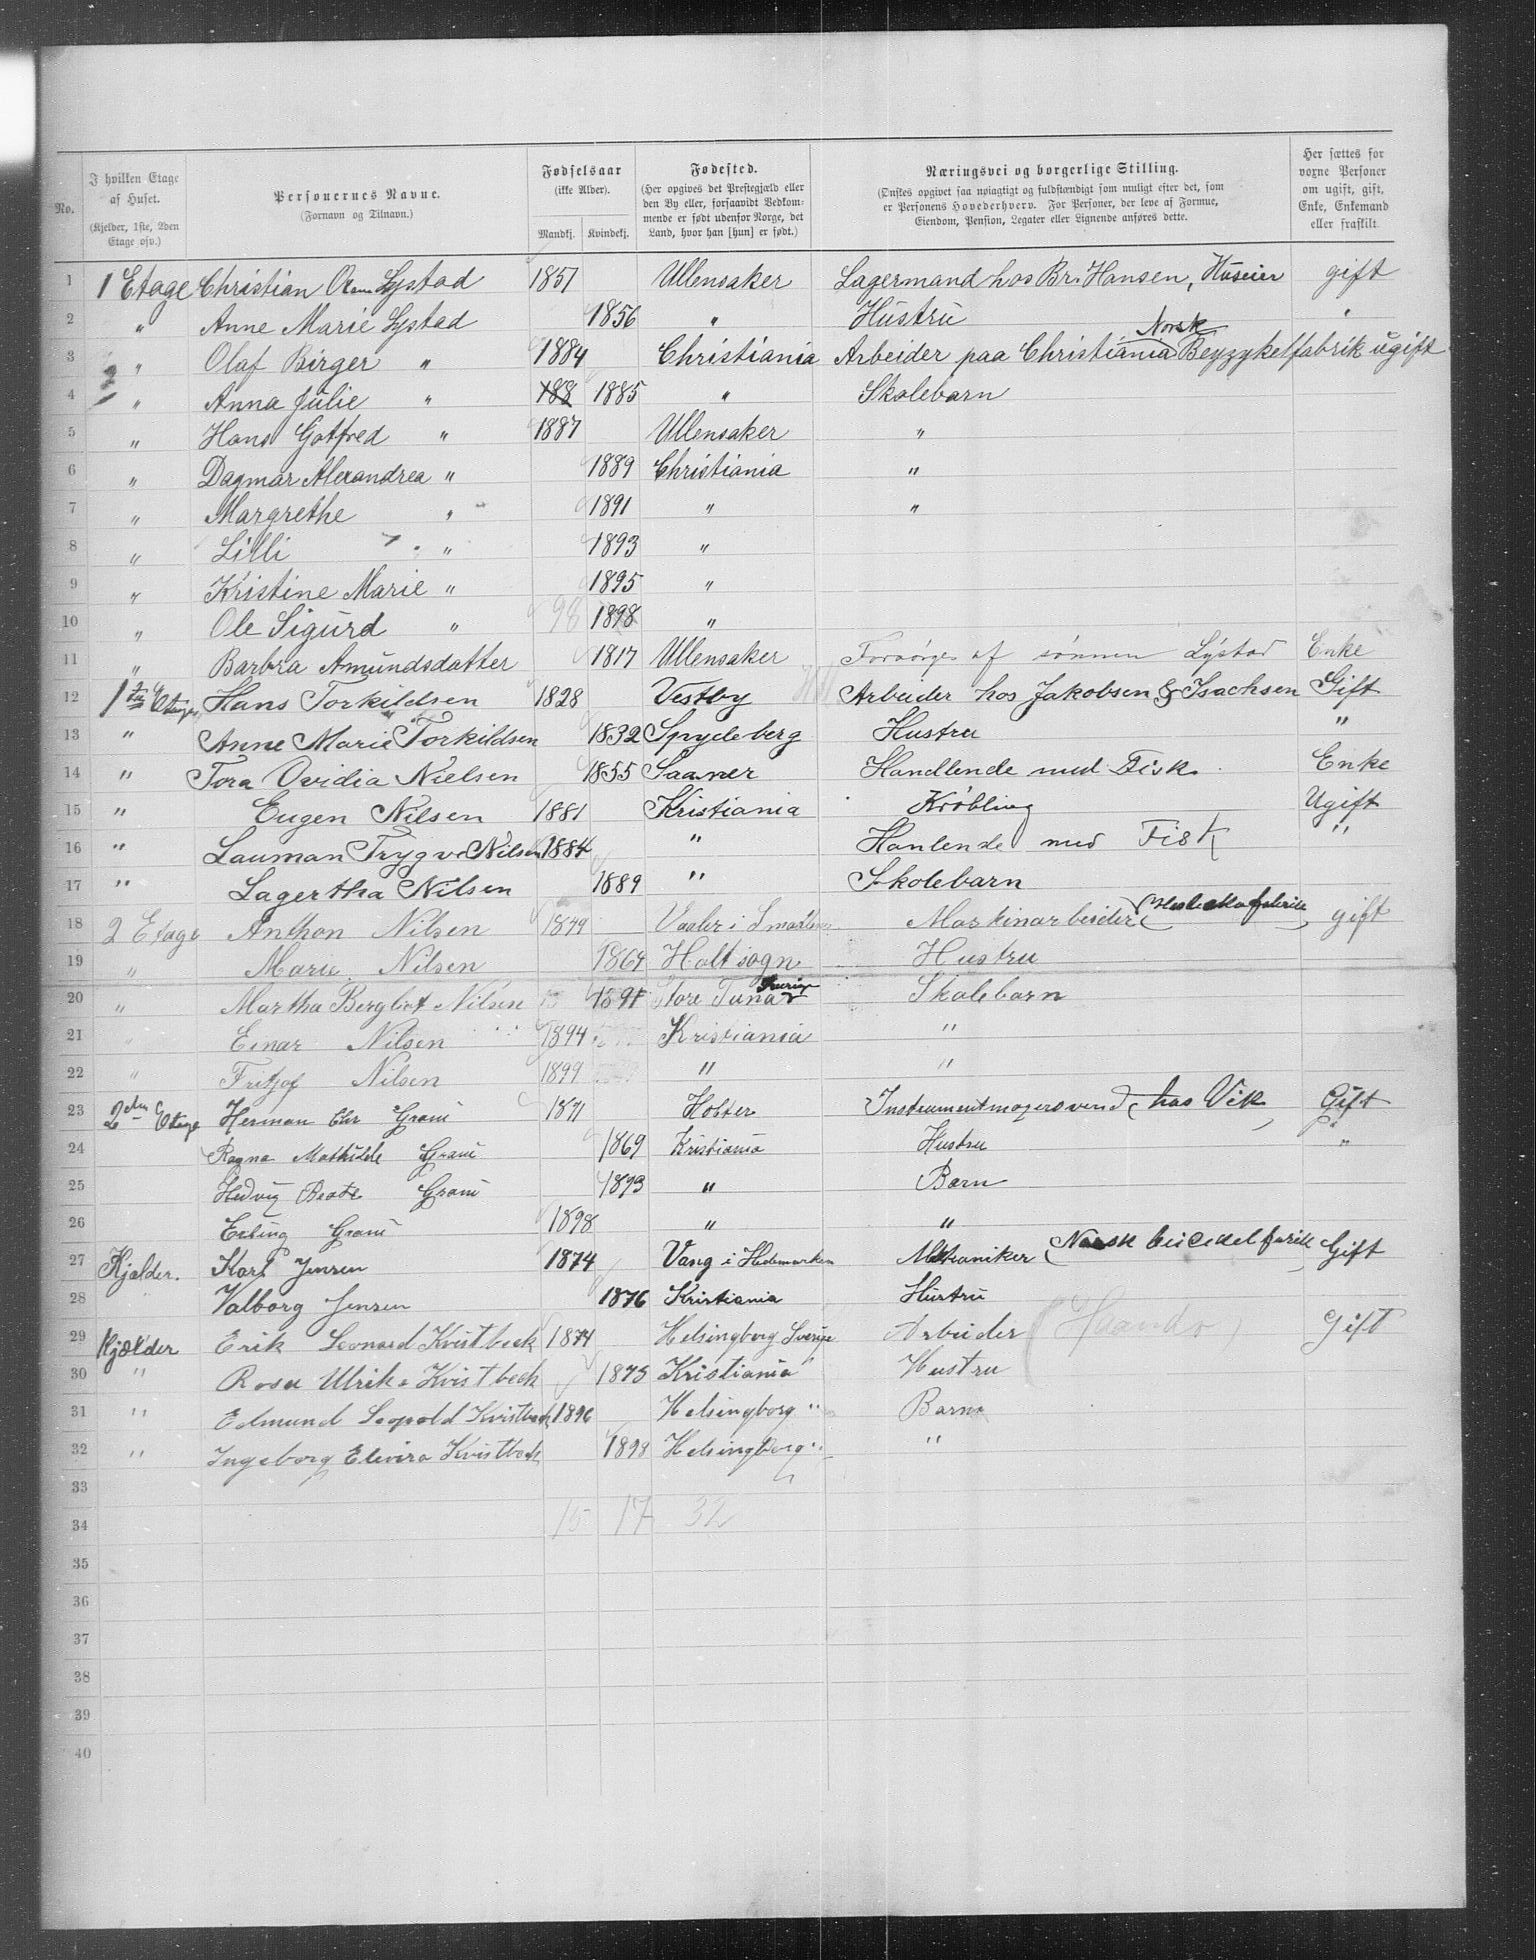 No. | I hvilken Etage af Huset. (Kjelder, 1ste, 2den Etage osv.) | Personernes Navne. (Fornavn og Tilnavn.) | Fødselsaar (ikke Alder). Mandkj. Kvindekj. | Fødested. (Her opgives det Prestegjæld eller den By eller, forsaavidt Vedkommende er født udenfor Norge, det Land, hvor han [hun] er født.) | Næringsvei og borgerlige Stilling. (Ønskes opgivet saa nøiagtigt og fuldstændigt som muligt efter det, som er Personens Hovederhverv. For Personer, der leve af Formue, Eiendom, Pension, Legater eller Lignende anføres dette. | Her sættes for voxne Personer om ugift, gift, Enke, Enkemand eller fraskilt.
1 1 Etage Christian Lystad 1851 Ullensaker Lagermand hos Br. Hansen, Huseier gift
2 " Anne Marie Lystad 1856 " Hustru "
3 " Olaf Birger " 1884 Christiania Arbeider paa Christiania Norsk Beyzykelfabrik ugift
4 " Anna Julie " 188 1885 " Skolebarn
5 " Hans Gotfred " 1887 Ullensaker "
6 " Dagmar Alexandrea " 1889 Christiania "
7 " Margrethe " 1891 " "
8 " Lilli " 1893 "
9 " Kristine Marie " 1895 "
10 " Ole Sigurd " 98 1898 "
11 " Barbra Amundsdatter 1817 Ullensaker Forsørges af sønnen Lystad Enke
12 1ste Etage Hans Torkildsen 1828 Vestby Arbeider hos Jakobsen & Isachsen Gift
13 " Anne Marie Torkildsen 1832 Spydeberg Hustru "
14 " Tora Ovidia Nielsen 1855 Saaner Handlende med Fisk. Enke
15 " Eugen Nilsen 1881 Kristiania Krøbling Ugift
16 " Lauman Trygve Nilsen 1884 " Hanlende med Fisk "
17 " Lagertha Nilsen 1889 " Skolebarn
18 2 Etage Anthon Nilsen Vaaler i Smaalene Maskinarbeider gift
19 " Marie Nilsen 1869 Holt sogn Hustru
20 " Martha Bergliot Nilsen 1891 Store Tuna Sverige Skolebarn
21 " Einar Nilsen 1894 Kristiania "
22 " Fritjof Nilsen 1899 " "
23 2den Etage Herman Chr Grani 1871 Hobter Instrumentmagersvend (hos Vik) Gift
24 Ragna Mathilde Grani 1869 Kristiania Hustru "
25 Hedvig Beate Grani 1893 " Barn
26 Erling Grani 1898 " "
27 Kjælder. Karl Jensen 1874 Vang i Hedemarken Mekaniker (Norsk bicikel fabrik) Gift
28 Valborg Jensen 1876 Kristiania Hustru
29 Kjælder Erik Leonard Kvistbeck 1874 Helsingborg Sverige Arbeider Gift
30 " Rosa Ulrike Kvistbeck 1875 Kristiania " Hustru
31 " Edmund Leopold Kvistbeck 1896 Helsingborg " Barn
32 " Ingeborg Elevira Kvistbeck 1898 Helsingborg " "
33
34 15 17 32
35
36
37
38
39
40